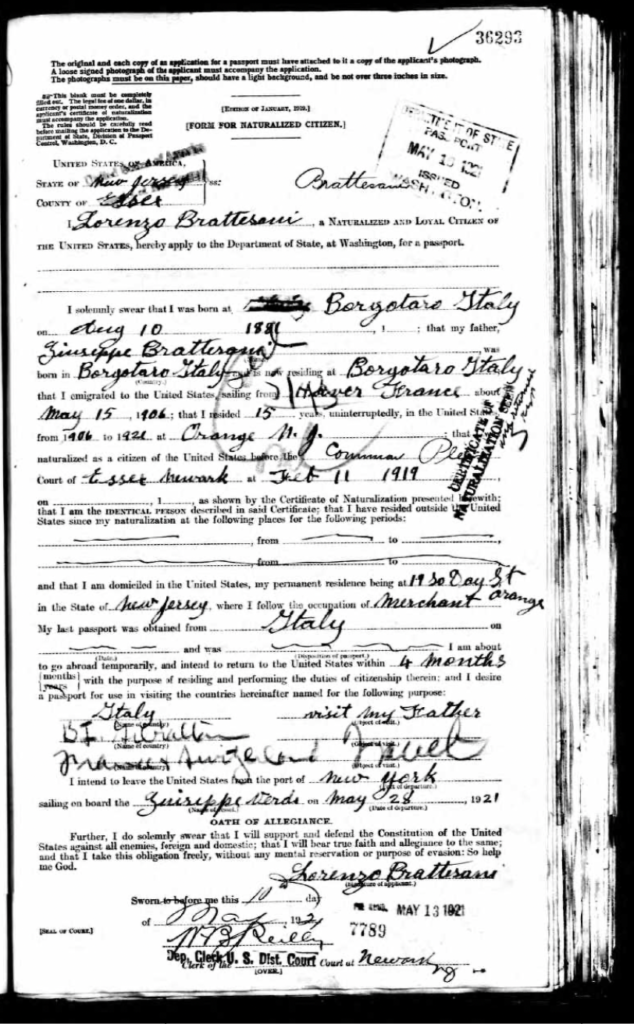 36293
The original and each copy of an application for a passport must have attached to it a copy of the applicant's photograph.
A loose signed photograph of the applicant must accompany the application.
The photographs must be on this paper, should have a light background, and be not over three inches in size.
This blank must be completely
filled out. The legal fee of one dollar, in
currency or postal money order, and the
applicant's certificate of naturalization
must accompany the application.
The rules should be carefully read
before mailing the application to the De-
partment of State, Division of Passport
Control, Washington, D. C.
[FORM FOR NATURALIZED CITIZEN.]
DEPARTMENT OF STATE
PASSPORT
MAY 1921
ISSUED
WASHINGTON
UNITED STATES OF AMERICA,
STATE OF New Jersey ss:
COUNTY OF Essex
Brattesani
I, Lorenzo Brattesani, a NATURALIZED AND LOYAL CITIZEN OF
THE UNITED STATES, hereby apply to the Department of State, at Washington, for a passport.
I solemnly swear that I was born at Borgotaro Italy
on Aug 10 188 , 1 ; that my father,
Giuseppe Brattesani, was
born in Borgotaro Italy is now residing at Borgotaro Italy
(Country.)
that I emigrated to the United States, sailing from Haver France about
May 15, 1906; that I resided 15 years, uninterruptedly, in the United States
from 1906 to 1921 at Orange N.J.; that
naturalized as a citizen of the United States before the Common Pleas
Court of Essex Newark at Feb 11 1919
CERTIFICATE OF
NATURALIZATION SEEN
on , 1 , as shown by the Certificate of Naturalization presented herewith;
that I am the IDENTICAL PERSON described in said Certificate; that I have resided outside the United
States since my naturalization at the following places for the following periods:
, from to
, from to
and that I am domiciled in the United States, my permanent residence being at 19 So Day St
Orange
in the State of New Jersey, where I follow the occupation of Merchant
My last passport was obtained from Italy on
and was I am about
(Date.) (Disposition of passport.)
to go abroad temporarily, and intend to return to the United States within 4 months
{months}
{years} with the purpose of residing and performing the duties of citizenship therein; and I desire
a passport for use in visiting the countries hereinafter named for the following purpose:
Italy visit my Father
(Name of country.) (Object of visit.)
(Name of country.) (Object of visit.)
France Switzerland Travel
(Object of visit.)
I intend to leave the United States from the port of New York
(Port of departure.)
sailing on board the Guiseppe Verdi on May 28, 1921
(Date of departure.)
OATH OF ALLEGIANCE.
Further, I do solemnly swear that I will support and defend the Constitution of the United
States against all enemies, foreign and domestic; that I will bear true faith and allegiance to the same;
and that I take this obligation freely, without any mental reservation or purpose of evasion: So help
me God.
Lorenzo Brattesani
(Signature of applicant.)
Sworn to before me this 10 day
of May, 1921
MAY 13 1921
7789
[SEAL OF COURT.]
Dep. Clerk U. S. Dist. Court
Clerk of the Court at Newark
NJ
(OVER.)